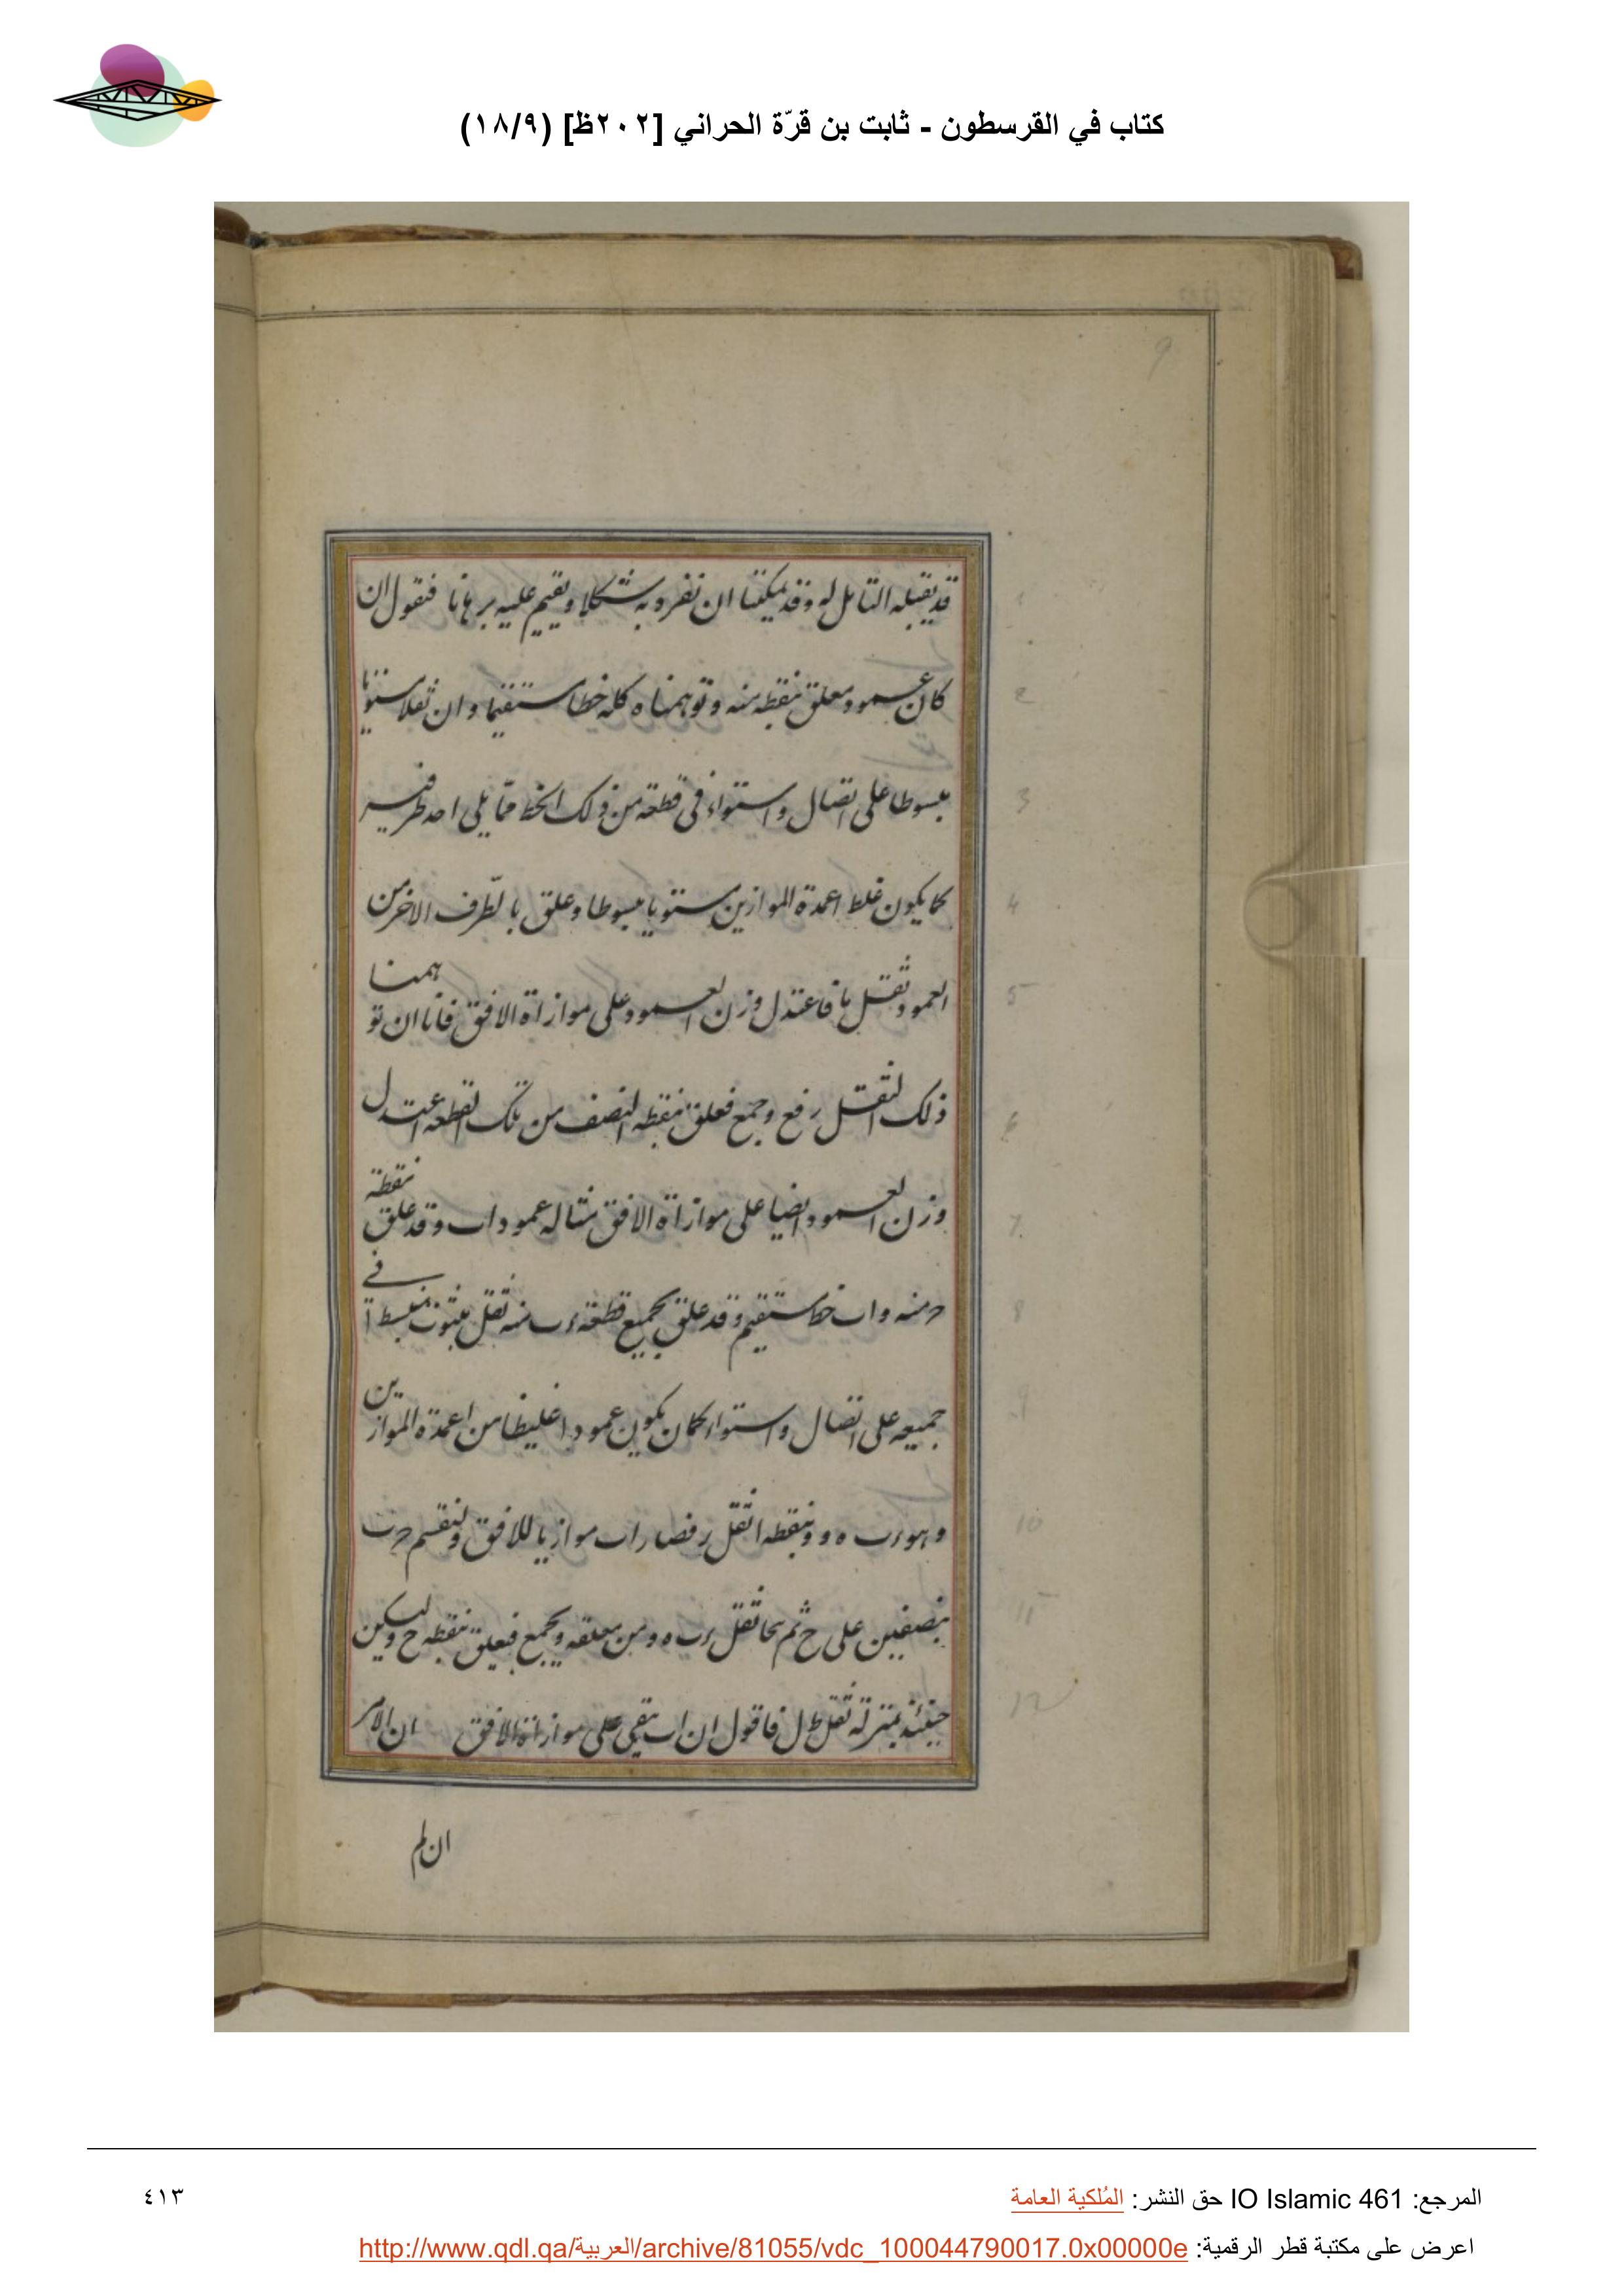 كتاب في القرسطون - ثابت بن قرّة الحراني [٢٠٢ظ] (١٨/٩)
9
قد يقبله التامل له وقد يمكننا ان نفرد به شكلا ونقيم عليه برهانا فنقول ان
كان عمود معلق بنقطه منه وتوهمناه كله خطا مستقيما وان ثقلا مستويا
مبسوطا على اتصال واستواء في قطعة من ذلك الخط مما يلي احد طرفيه
كما يكون غلط اعمدة الموازين مستويا مبسوطا وعلق بالطّرف الاخر من
العمود ثقل ما فاعتدل وزن العمود على موازاة الافق فانا ان توهمنا
ذلك الثقل رفع وجمع فعلق بنقطه النصف من تلك القطعه اعتدل
وزن العمود ايضا على موازاة الافق مثاله عمود اب وقد علق نقطة
ح منه واب خط مستقيم وقد علق بجميع قطعة ء ب منه ثقل مبثوث منبسط في
جميعه على اتصال واستواء كان يكون عمودا غليظا من اعمدة الموازين
وهو ء ب ه و وبنقطه ا ثقل ر فصار اب موازيا للافق ولنقسم ء ب
بنصفين على ح ثم نحا ثقل ء ب ه و من معلقه ويجمع فيعلق بنقطه ح وليكن
حينئذ بمنزلة ثقل ط ل فاقول ان اب يبقى على موازاة الافق ان الامر
ان لم
1
2
3
4
5
6
7
8
9
10
11
12
المرجع: IO Islamic 461 حق النشر: المُلكية العامة
٤١٣
اعرض على مكتبة قطر الرقمية: http://www.qdl.qa/العربية/archive/81055/vdc_100044790017.0x00000e